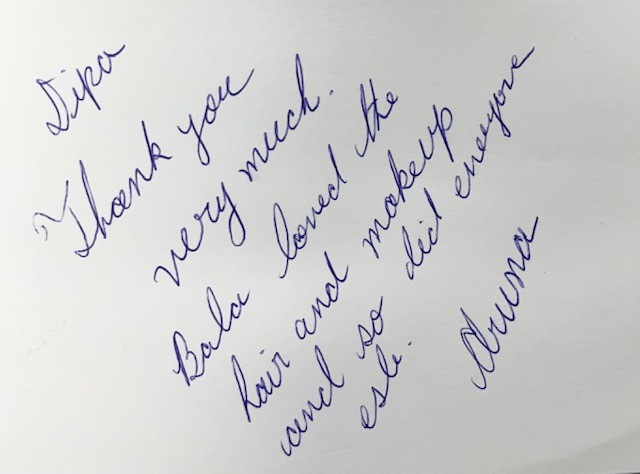 Dipa
Thank you
very much.
Bala loved the
hair and makeup
and so did everyone
esle.
Aruna